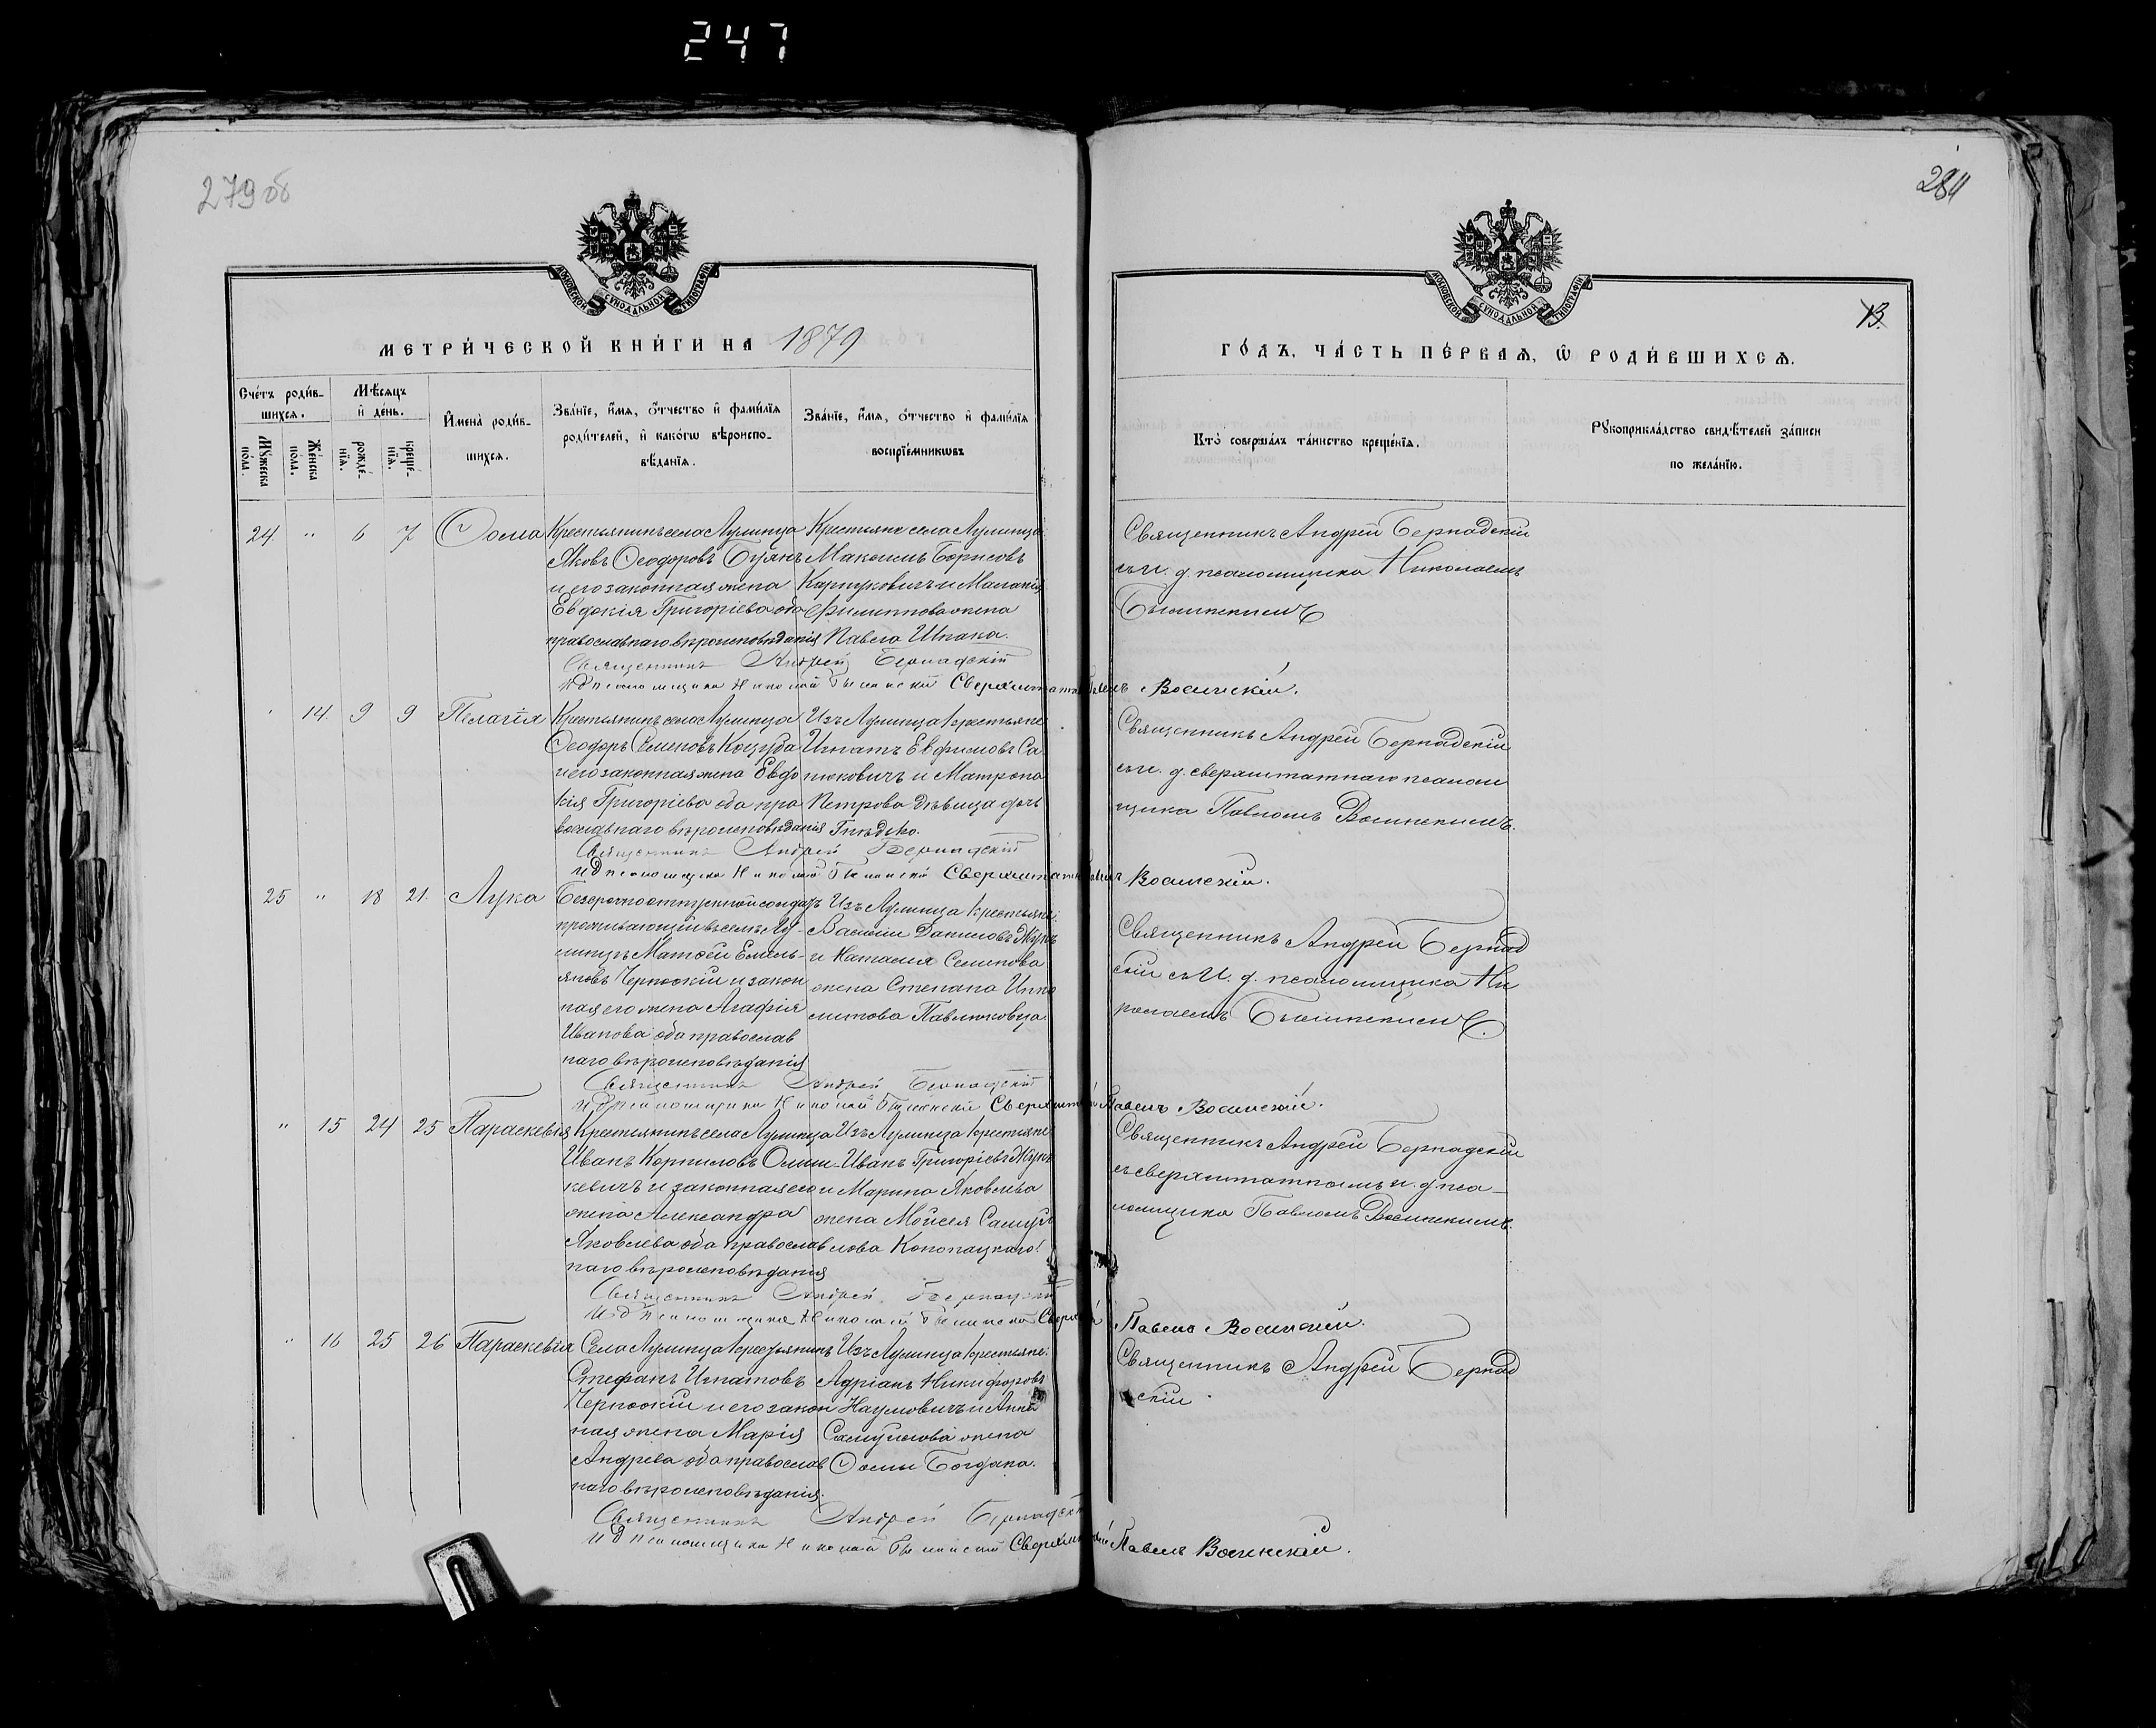 247
279 об
280
13.
МОСКОВСКОЙ СУНОДАЛЬНОЙ ТИПОГРАФІИ
МОСКОВСКОЙ СУНОДАЛЬНОЙ ТИПОГРАФІИ
МЕТРИ́ЧЕСКОЙ КНИ́ГИ НА 1879
ГО́ДЪ, ЧА́СТЬ ПЕ́РВАѦ, Ѿ РОДИ́ВШИХСѦ.
Сче́тъ роди́в-
шихсѧ.
Мꙋ́жеска по́ла.
Же́нска по́ла.
Мѣ́сѧцъ
и҆ де́нь.
рожде́-
нїѧ.
креще́-
нїѧ.
И҆мена̀ роди́в-
шихсѧ.
Зва́нїе, и҆́мѧ, о҆́тчество и҆ фами́лїѧ
роди́телей, и҆ како́гѡ вѣроиспо-
вѣ́данїѧ.
Зва́нїе, и҆́мѧ, о҆́тчество и҆ фами́лїѧ
воспрїе́мникѡвъ
Кто̀ соверша́лъ та́инство креще́нїѧ.
Рꙋкоприкла́дство свидѣ́телей за́писи
по жела́нїю.
24 " 6 7 Ѳома
Крестьянинъ села Лулинца
Яковъ Ѳеодоровъ Буянъ
и его законная жена
Евдокія Григоріева оба
православнаго вѣроисповѣданія
Крестьяне села Лулинца
Максимъ Борисовъ
Карпуковичъ и Маланія
Филиппова жена
Павла Шпака.
Священникъ Андрей Бернадскій
съ и. д. псаломщика Николаемъ
Священникъ Андрей Бернадскій
И д псаломщика Николай Сверхштатн Павелъ Волинскій.
" 14. 9 9 Пелагія
Крестьянинъ села Лулинца
Ѳеодоръ Семеновъ Коцуба
и его законная жена Евдо
кія Григоріева оба пра
вославнаго вѣроисповѣданія
Изъ Лулинца крестьяне
Игнатъ Евфимовъ Са
нюковичъ и Матрона
Петрова дѣвица дочь
Гнѣдько.
Священникъ Андрей Бернадскій
съ и. д. сверхштатнаго псалом
щика Павломъ Волинскимъ.
Священникъ Андрей Бернадскій
И д псаломщика Николай Сверхштатн Павелъ Волинскій.
25 " 18 21. Лука
Безсрочноотпускной солдатъ
проживающій въ селѣ Лу-
линцѣ Матѳей Емель-
яновъ Черноокій и закон
ная его жена Агафія
Иванова оба православ
наго вѣроисповѣданія
Изъ Лулинца крестьяне:
Василій Даниловъ Жукъ
и Наталія Семенова
жена Степана Иппо
литова Павлюковца
Священникъ Андрей Бернад
скій съ И. д. псаломщика Ни
колаемъ
Священникъ Андрей Бернадскій
И д псаломщика Николай Сверхштатн Павелъ Волинскій.
" 15 24 25 Параскевія
Крестьянинъ села Лулинца
Иванъ Корниловъ Олиш-
кевичъ и законная его
жена Александра
Яковлева оба православ
наго вѣроисповѣданія
Изъ Лулинца крестьяне
Иванъ Григоріевъ Жукъ
и Марина Яковлева
жена Моисея Самуй
лова Конопацкаго.
Священникъ Андрей Бернадскій
съ сверхштатнымъ и. д. пса-
ломщика Павломъ Волинскимъ.
Священникъ Андрей Бернадскій
И д псаломщика Николай Павелъ Волинскій.
" 16 25 26 Параскевія
Села Лулинца крестьянинъ
Стефанъ Игнатовъ
Черноокій и его закон
ная жена Марія
Андреева оба православ
наго вѣроисповѣданія.
Изъ Лулинца крестьяне:
Адріанъ Никифоровъ
Наумовичъ и Анна
Самуилова жена
Ѳомы Богдана.
Священникъ Андрей Бернад
скій
Священникъ Андрей Бернадскій
И д псаломщика Николай Павелъ Волинскій.